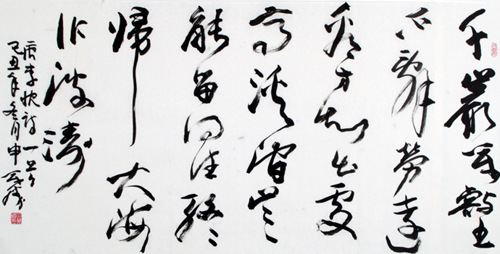 千巖万壑
不辭勞遠
看方知出處
高溪澗豈
能留得住終
歸大海
作波濤
唐李忱詩一首
己丑年冬月申